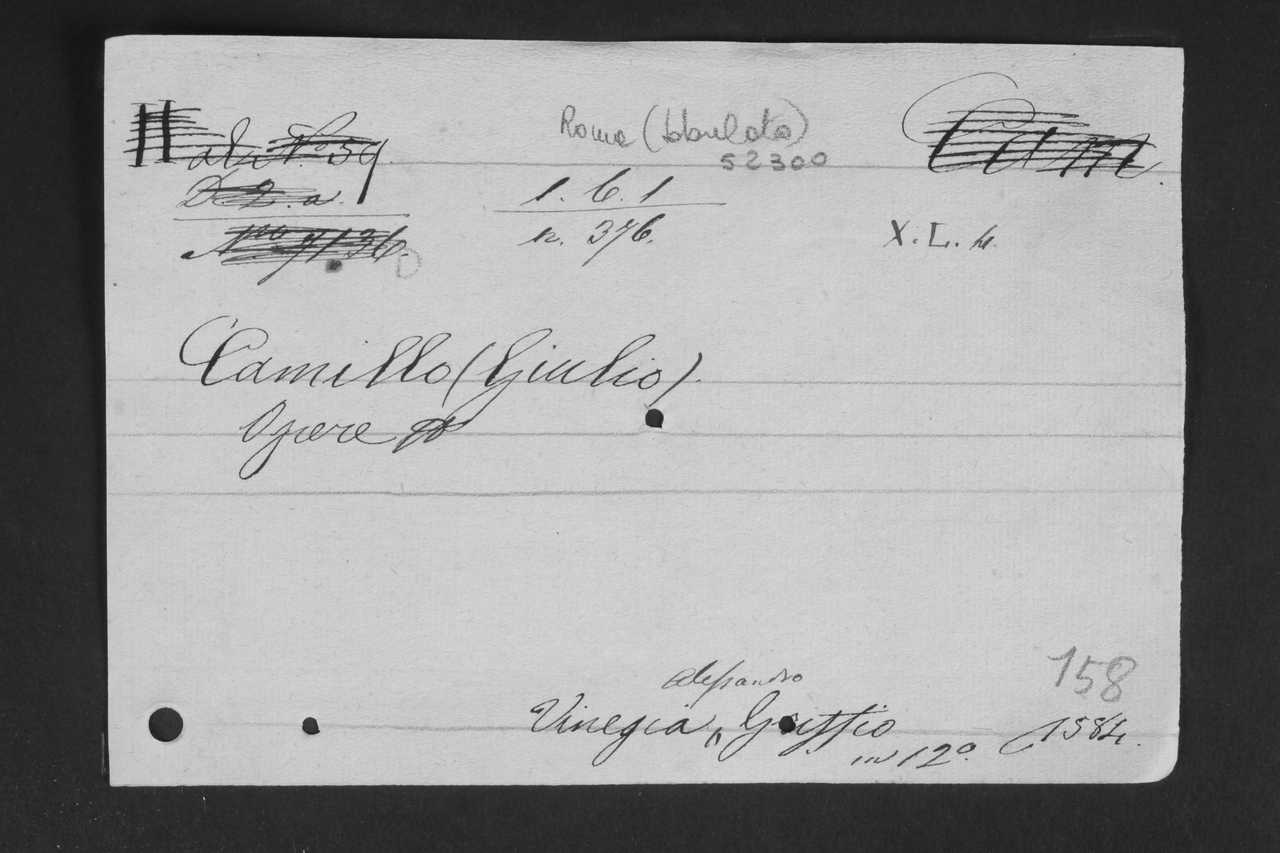 Roma (tabulato)
52300
1. 6. 1
n. 376.
X. L. 4.
Camillo (Giulio).
Opere
158
Alessandro
Vinegia, Griffio
in 12º. 1584.